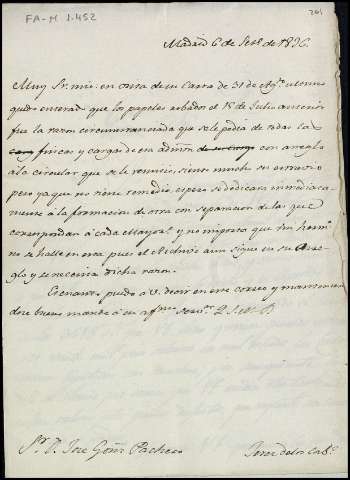 FA-M 1.452
Madrid 6 de Setᵉ. de 1836.
Muy Sr. mio. en vista de su Carta de 31 de Agᵗᵒ. ultimo
quedo enterado que los papeles robados el 18 de Julio anterior
fue la razon circunstanciada que se le pedia de todas las
fincas y cargas de esa admⁿ. con arreglo
a la circular que se le remitio, siento mucho su extravio
pero ya que no tiene remedio, espero se dedicara inmediata
mente a la formacion de otra con separacion de las que
correspondan a cada Mayorᵍᵒ. y no importa que mi herᵐᵒ.
no se halle en esa, pues el Archivo aun sigue en su Arre-
glo y se necesita dicha razon.
Es cuanto puedo a V. decir en este correo y mantenien
dose bueno mande a su afᵐᵒ. segᵒ. servʳ. Q. S. M. B.
Sr. D. Jose Goñi Pacheco
Jerez de los Cabˢ.